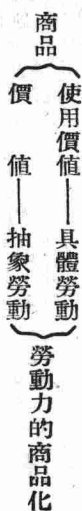 商品
使用價值——具體勞動
價值——抽象勞動
勞動力的商品化